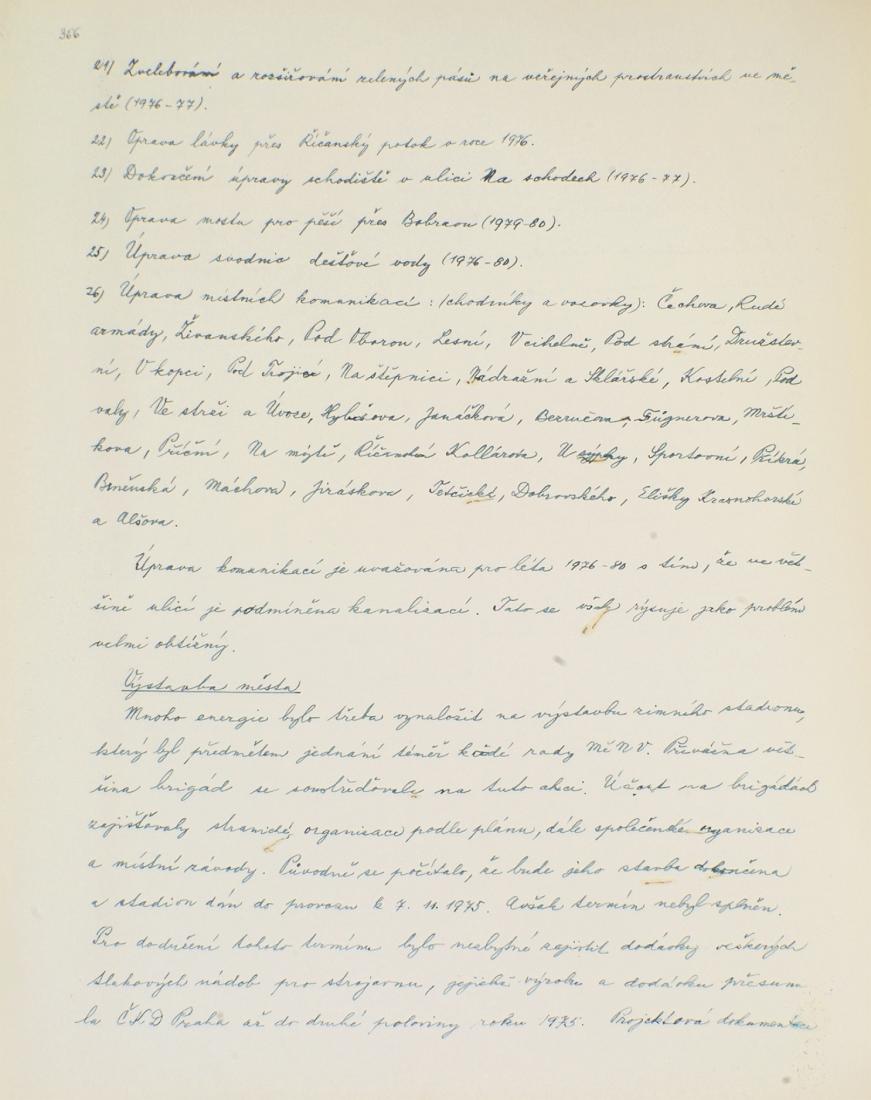 366
21) Zvelebování a rozšiřování zelených pásů na veřejných prostranstvích ve mě-
stě (1976-77).
22) Oprava lávky přes Říčanský potok v roce 1976.
23) Dokončení úpravy schodiště v ulici Na schodech (1976-77).
24) Oprava mostu pro pěší přes Bobravu (1979-80).
25) Úprava svodnic dešťové vody (1976-80).
26) Úprava místních komunikací: (chodníky a vozovky): Čechova, Rudé
armády, Živanského, Pod Oborou, Lesní, V cihelně, Pod strání, Družstev-
ní, V kopci, Pod Trojicí, Na štěpnici, Nádražní a Sklářské, Kostelní, Pod
valy, Ve strži a Úvoze, Hybešova, Janáčková, Bezručova, Fügnerova, Mršti-
kova, Příční, Na mýtě, Říčanská Kollárova, U Sportovní, Příkrá,
Brněnská, Máchova, Jiráskova, Tetčická, Dobrovského, Elišky Krasnohorské
a Alšova.
Úprava komunikací je uvažována pro léta 1976-80 s tím, že ve vět-
šině ulicí je podmíněna kanalizací. Tato se však rýsuje jako problém
velmi obtížný.
Výstavba města
Mnoho energie bylo třeba vynaložit na výstavbu zimního stadionu,
který byl předmětem jednání téměř každé rady MěNV. Převážná vět-
šina brigád se soustřeďovala na tuto akci. Účast na brigádách
zajišťovaly stranické organisace podle plánu, dále společenské organisace
a místní závody. Původně se počítalo, že bude jeho stavba dokončena
a stadion dán do provozu k 7. 11. 1975. Avšak termín nebyl splněn.
Pro dodržení tohoto termínu bylo nezbytné zajistit dodávky veškerých
tlakových nádob pro strojovnu, jejichž výrobu a dodávku přesunu
la ČKD Praha až do druhé poloviny roku 1975. Projektová dokumentace